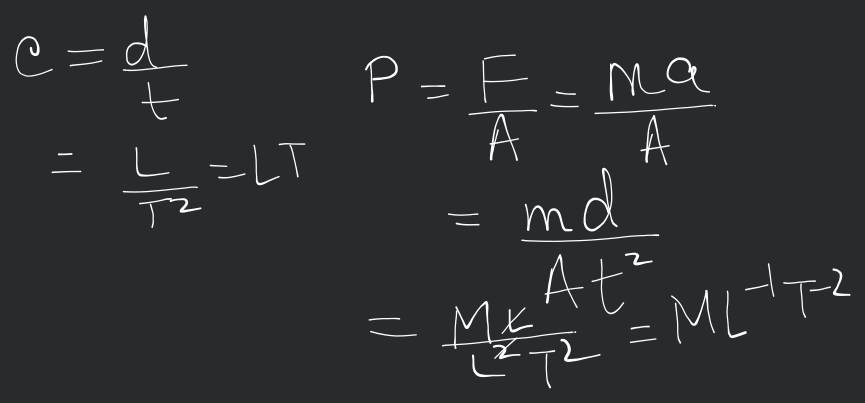 c = d/t
= L/T² = LT
P = F/A = ma/A
= md/At²
= ML/L²T² = ML⁻¹T⁻²